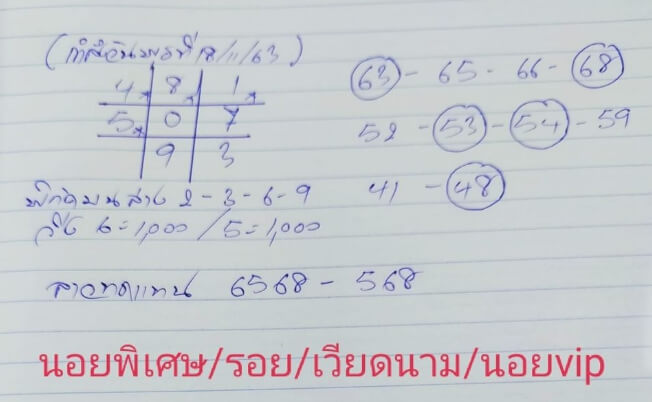 (กำลังวันพุธที่ 18/11/63)
4 8 1
5 0 7
9 3
63 - 65 - 66 - 68
52 - 53 - 54 - 59
41 - 48
บน ล่าง 2 - 3 - 6 - 9
วิ่ง 6=1,000 / 5=1,000
ลาวทดแทน 6568 - 568
นอยพิเศษ/รอย/เวียดนาม/นอยvip